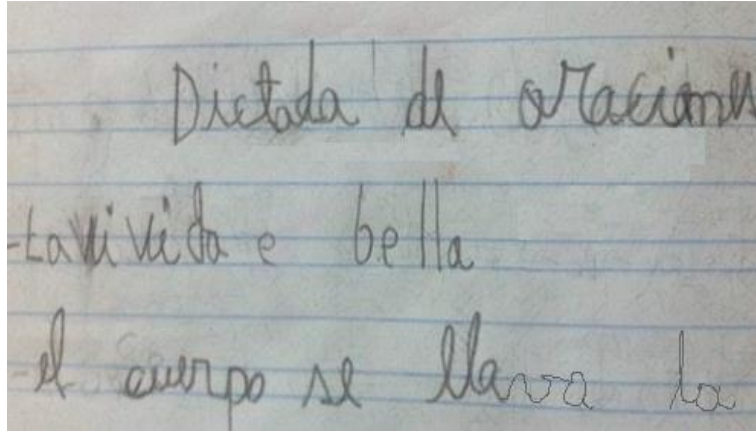 Dictada de oracione
-La vi vida e bella
-el cuerpo se llava la